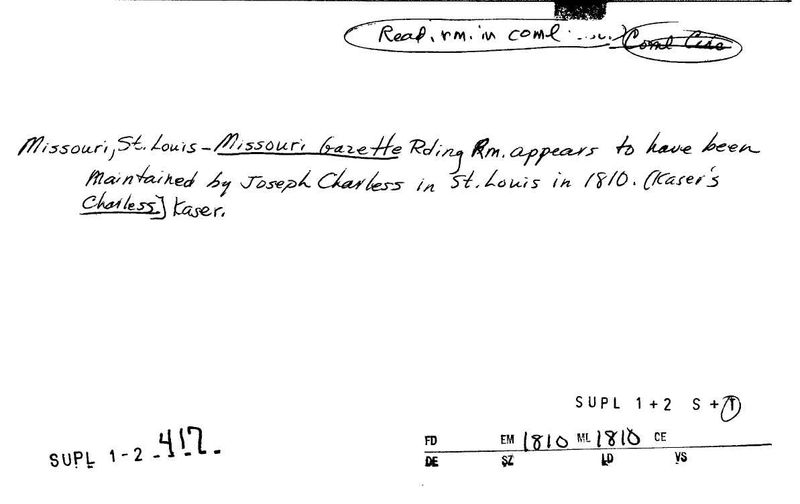 Read. rm. in coml
Missouri, St. Louis – Missouri Gazette Rding Rm. appears to have been
Maintained by Joseph Charless in St. Louis in 1810. (Kaser's
Charless] Kaser.
SUPL 1+2 S+T
SUPL 1-2 - 417 -
FD EM 1810 ML 1810 CE
DE SZ LD VS